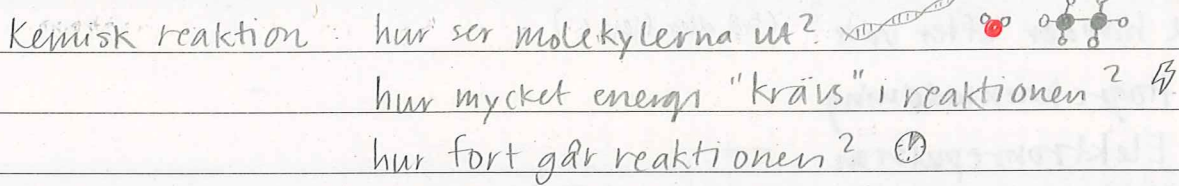 Kemisk reaktion hur ser molekylerna ut?
hur mycket energi "krävs" i reaktionen?
hur fort går reaktionen?